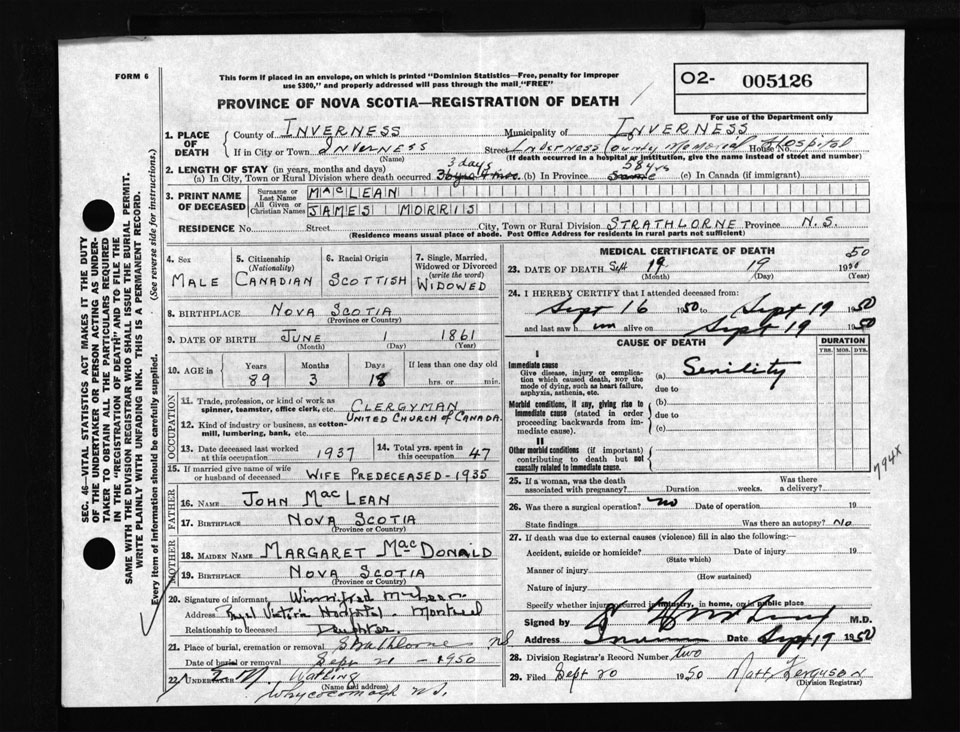 FORM 6
This form if placed in an envelope, on which is printed "Dominion Statistics—Free, penalty for improper
use $300," and properly addressed will pass through the mail "FREE"
O2- 005126
For use of the Department only
PROVINCE OF NOVA SCOTIA—REGISTRATION OF DEATH
SEC. 46—VITAL STATISTICS ACT MAKES IT THE DUTY
OF THE UNDERTAKER OR PERSON ACTING AS UNDER-
TAKER TO OBTAIN ALL THE PARTICULARS REQUIRED
IN THE "REGISTRATION OF DEATH" AND TO FILE THE
SAME WITH THE DIVISION REGISTRAR WHO SHALL ISSUE THE BURIAL PERMIT.
WRITE PLAINLY WITH UNFADING INK. THIS IS A PERMANENT RECORD.
Every item of information should be carefully supplied. (See reverse side for instructions.)
1. PLACE OF DEATH
County of INVERNESS Municipality of INVERNESS
If in City or Town INVERNESS Street INVERNESS County Memorial House No. Hospital
(Name) (If death occurred in a hospital or institution, give the name instead of street and number)
2. LENGTH OF STAY (in years, months and days) 3 days 58 yrs
(a) In City, Town or Rural Division where death occurred (b) In Province Same (c) In Canada (if immigrant)
3. PRINT NAME OF DECEASED
Surname or Last Name MACLEAN
All Given or Christian Names JAMES MORRIS
RESIDENCE No. Street City, Town or Rural Division STRATHLORNE Province N.S.
(Residence means usual place of abode. Post Office Address for residents in rural parts not sufficient)
4. Sex MALE
5. Citizenship (Nationality) CANADIAN
6. Racial Origin SCOTTISH
7. Single, Married, Widowed or Divorced (write the word) WIDOWED
8. BIRTHPLACE NOVA SCOTIA
(Province or Country)
9. DATE OF BIRTH JUNE 1 1861
(Month) (Day) (Year)
10. AGE in Years Months Days If less than one day old
89 3 18 hrs. or min.
OCCUPATION
11. Trade, profession, or kind of work as spinner, teamster, office clerk, etc. CLERGYMAN
12. Kind of industry or business, as cotton-mill, lumbering, bank, etc. UNITED CHURCH OF CANADA.
13. Date deceased last worked at this occupation 1937
14. Total yrs. spent in this occupation 47
15. If married give name of wife or husband of deceased WIFE PREDECEASED - 1935
FATHER
16. NAME JOHN MACLEAN
17. BIRTHPLACE NOVA SCOTIA
(Province or Country)
MOTHER
18. MAIDEN NAME MARGARET MACDONALD
19. BIRTHPLACE NOVA SCOTIA
(Province or Country)
20. Signature of informant Winnifred McLean
Address Royal Victoria Hospital - Montreal
Relationship to deceased Daughter.
21. Place of burial, cremation or removal Strathlorne NS
Date of burial or removal Sept 21 - 1950
22. UNDERTAKER Watling
(Name and address)
Whycocomagh N.S.
MEDICAL CERTIFICATE OF DEATH
23. DATE OF DEATH Sept 19 19 1950 50
(Month) (Day) (Year)
24. I HEREBY CERTIFY that I attended deceased from:
Sept 16 1950 to Sept 19 1950
and last saw h im alive on Sept 19 1950
CAUSE OF DEATH DURATION
YRS. MOS. DYS.
I
Immediate cause
Give disease, injury or complication which caused death, not the mode of dying, such as heart failure, asphyxia, asthenia, etc.
(a) Senility
due to
Morbid conditions, if any, giving rise to immediate cause (stated in order proceeding backwards from immediate cause).
(b)
due to
(c)
II
Other morbid conditions (if important) contributing to death but not causally related to immediate cause.
794X
25. If a woman, was the death associated with pregnancy? Duration weeks. Was there a delivery?
26. Was there a surgical operation? no Date of operation 19
State findings Was there an autopsy? No
27. If death was due to external causes (violence) fill in also the following:—
Accident, suicide or homicide? Date of injury 19
(State which)
Manner of injury
(How sustained)
Nature of injury
Specify whether injury occurred in industry, in home, or in public place
Signed by M.D.
Address Date Sept 19 1950
28. Division Registrar's Record Number two
29. Filed Sept 20 1950 Matt Ferguson
(Division Registrar)